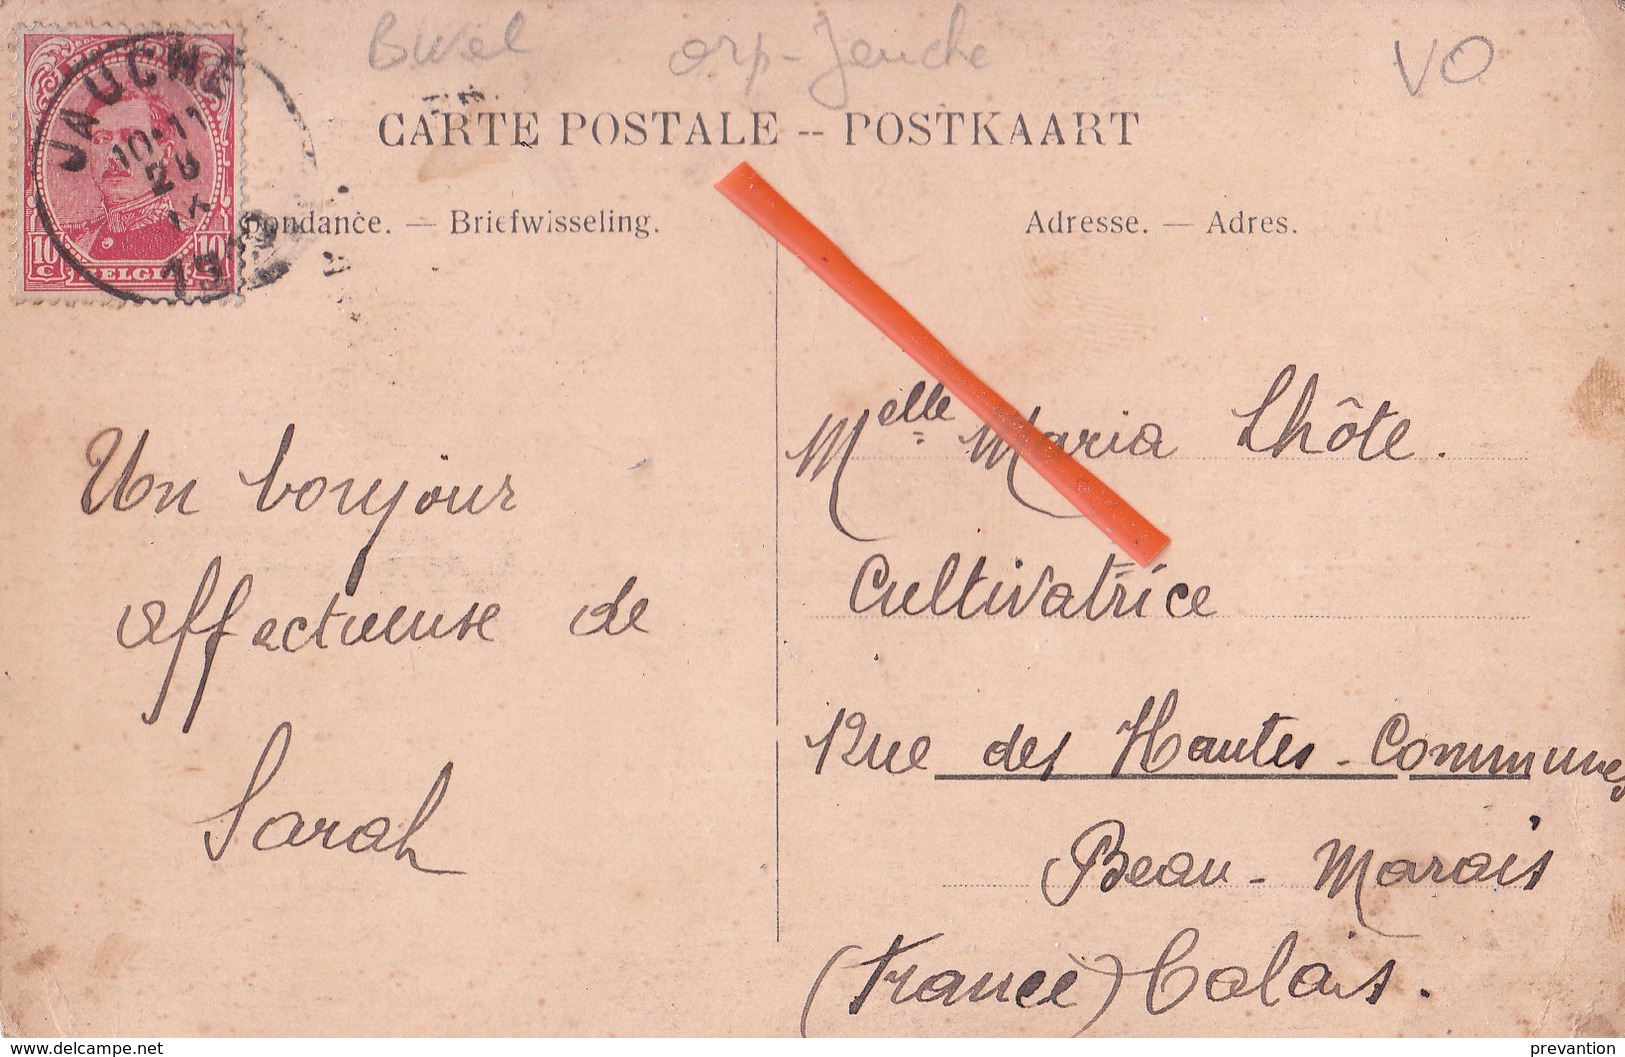 Orp-Jauche
VO
CARTE POSTALE -- POSTKAART
JAUCHE
10-11
10 10
C C
BELGI
pondance. — Briefwisseling.
Adresse. — Adres.
Un bonjour
affectueuse de
Sarah
Melle Maria Lhôte.
Cultivatrice
Rue des Hautes-Communes
Beau-Marais
(France) Calais.
www.delcampe.net
prevantion